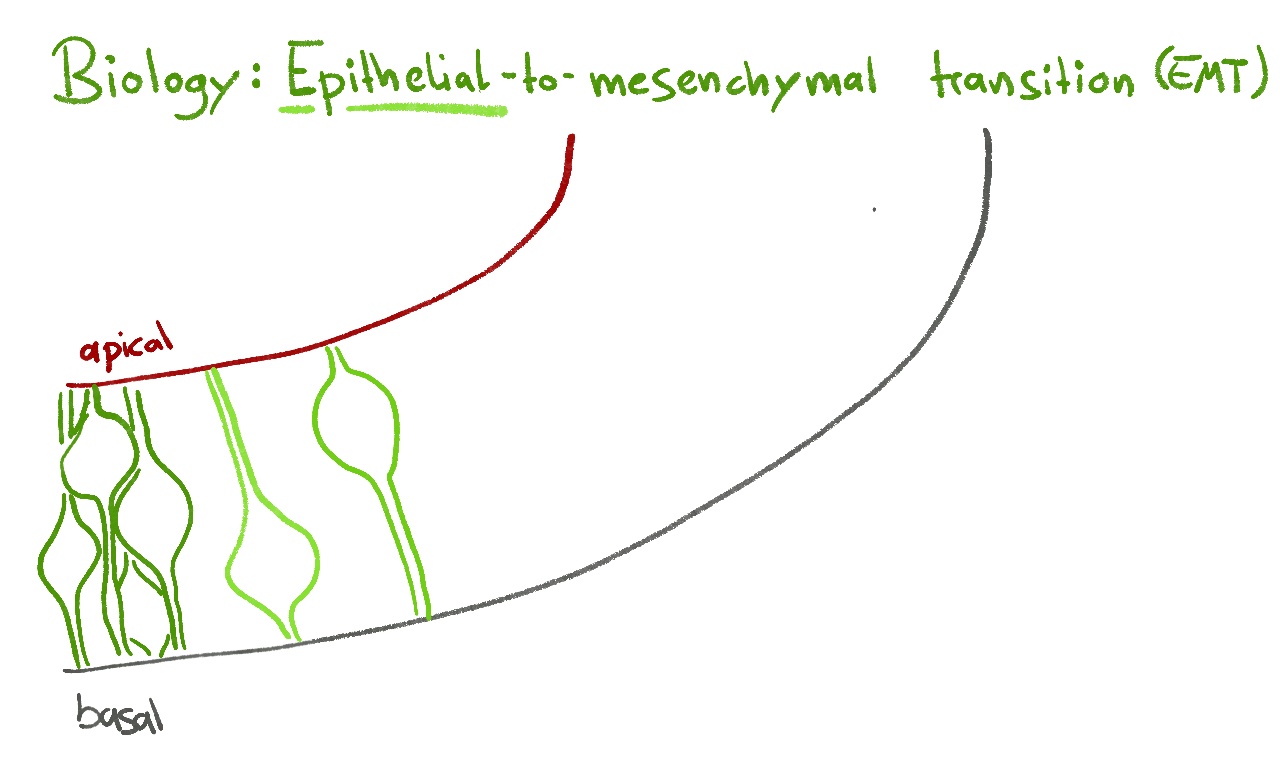 Biology: Epithelial-to-mesenchymal transition (EMT)
apical
basal